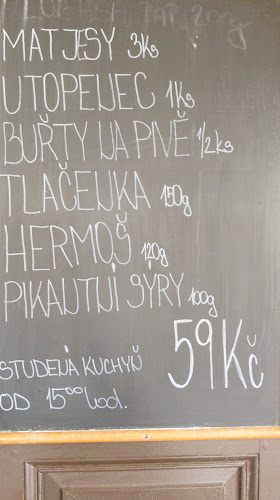 MATJESY 3ks
UTOPENEC 1ks
BUŘTY NA PIVĚ 1/2ks
TLAČENKA 150g
HERMOŠ 120g
PIKANTNÍ SÝRY 100g
59Kč
STUDENÁ KUCHYŇ
OD 15⁰⁰ hod.